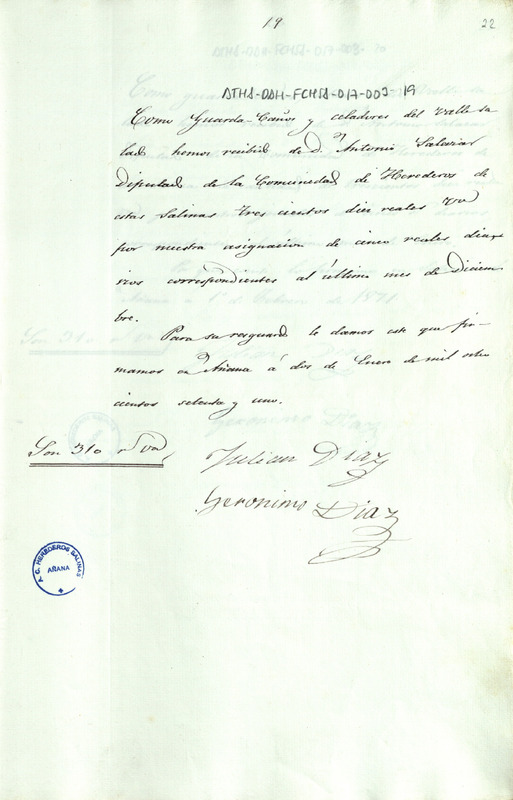 19
22
ATHA-DAH-FCHSA-017-003-19
Como Guarda-Caños y celadores del Valle sa
lado hemos recibido de Dn Antonio Salazar
Diputado de la Comunidad de Herederos de
estas Salinas tres cientos diez reales von
por nuestra asignacion de cinco reales dia-
rios correspondientes al último mes de Diciem
bre.
Para su resguardo le damos este que fir-
mamos en Añana á dos de Enero de mil ocho
cientos setenta y uno.
Son 310 rs von
Julian Diaz
Geronimo Diaz
A. C. HEREDEROS SALINAS
AÑANA